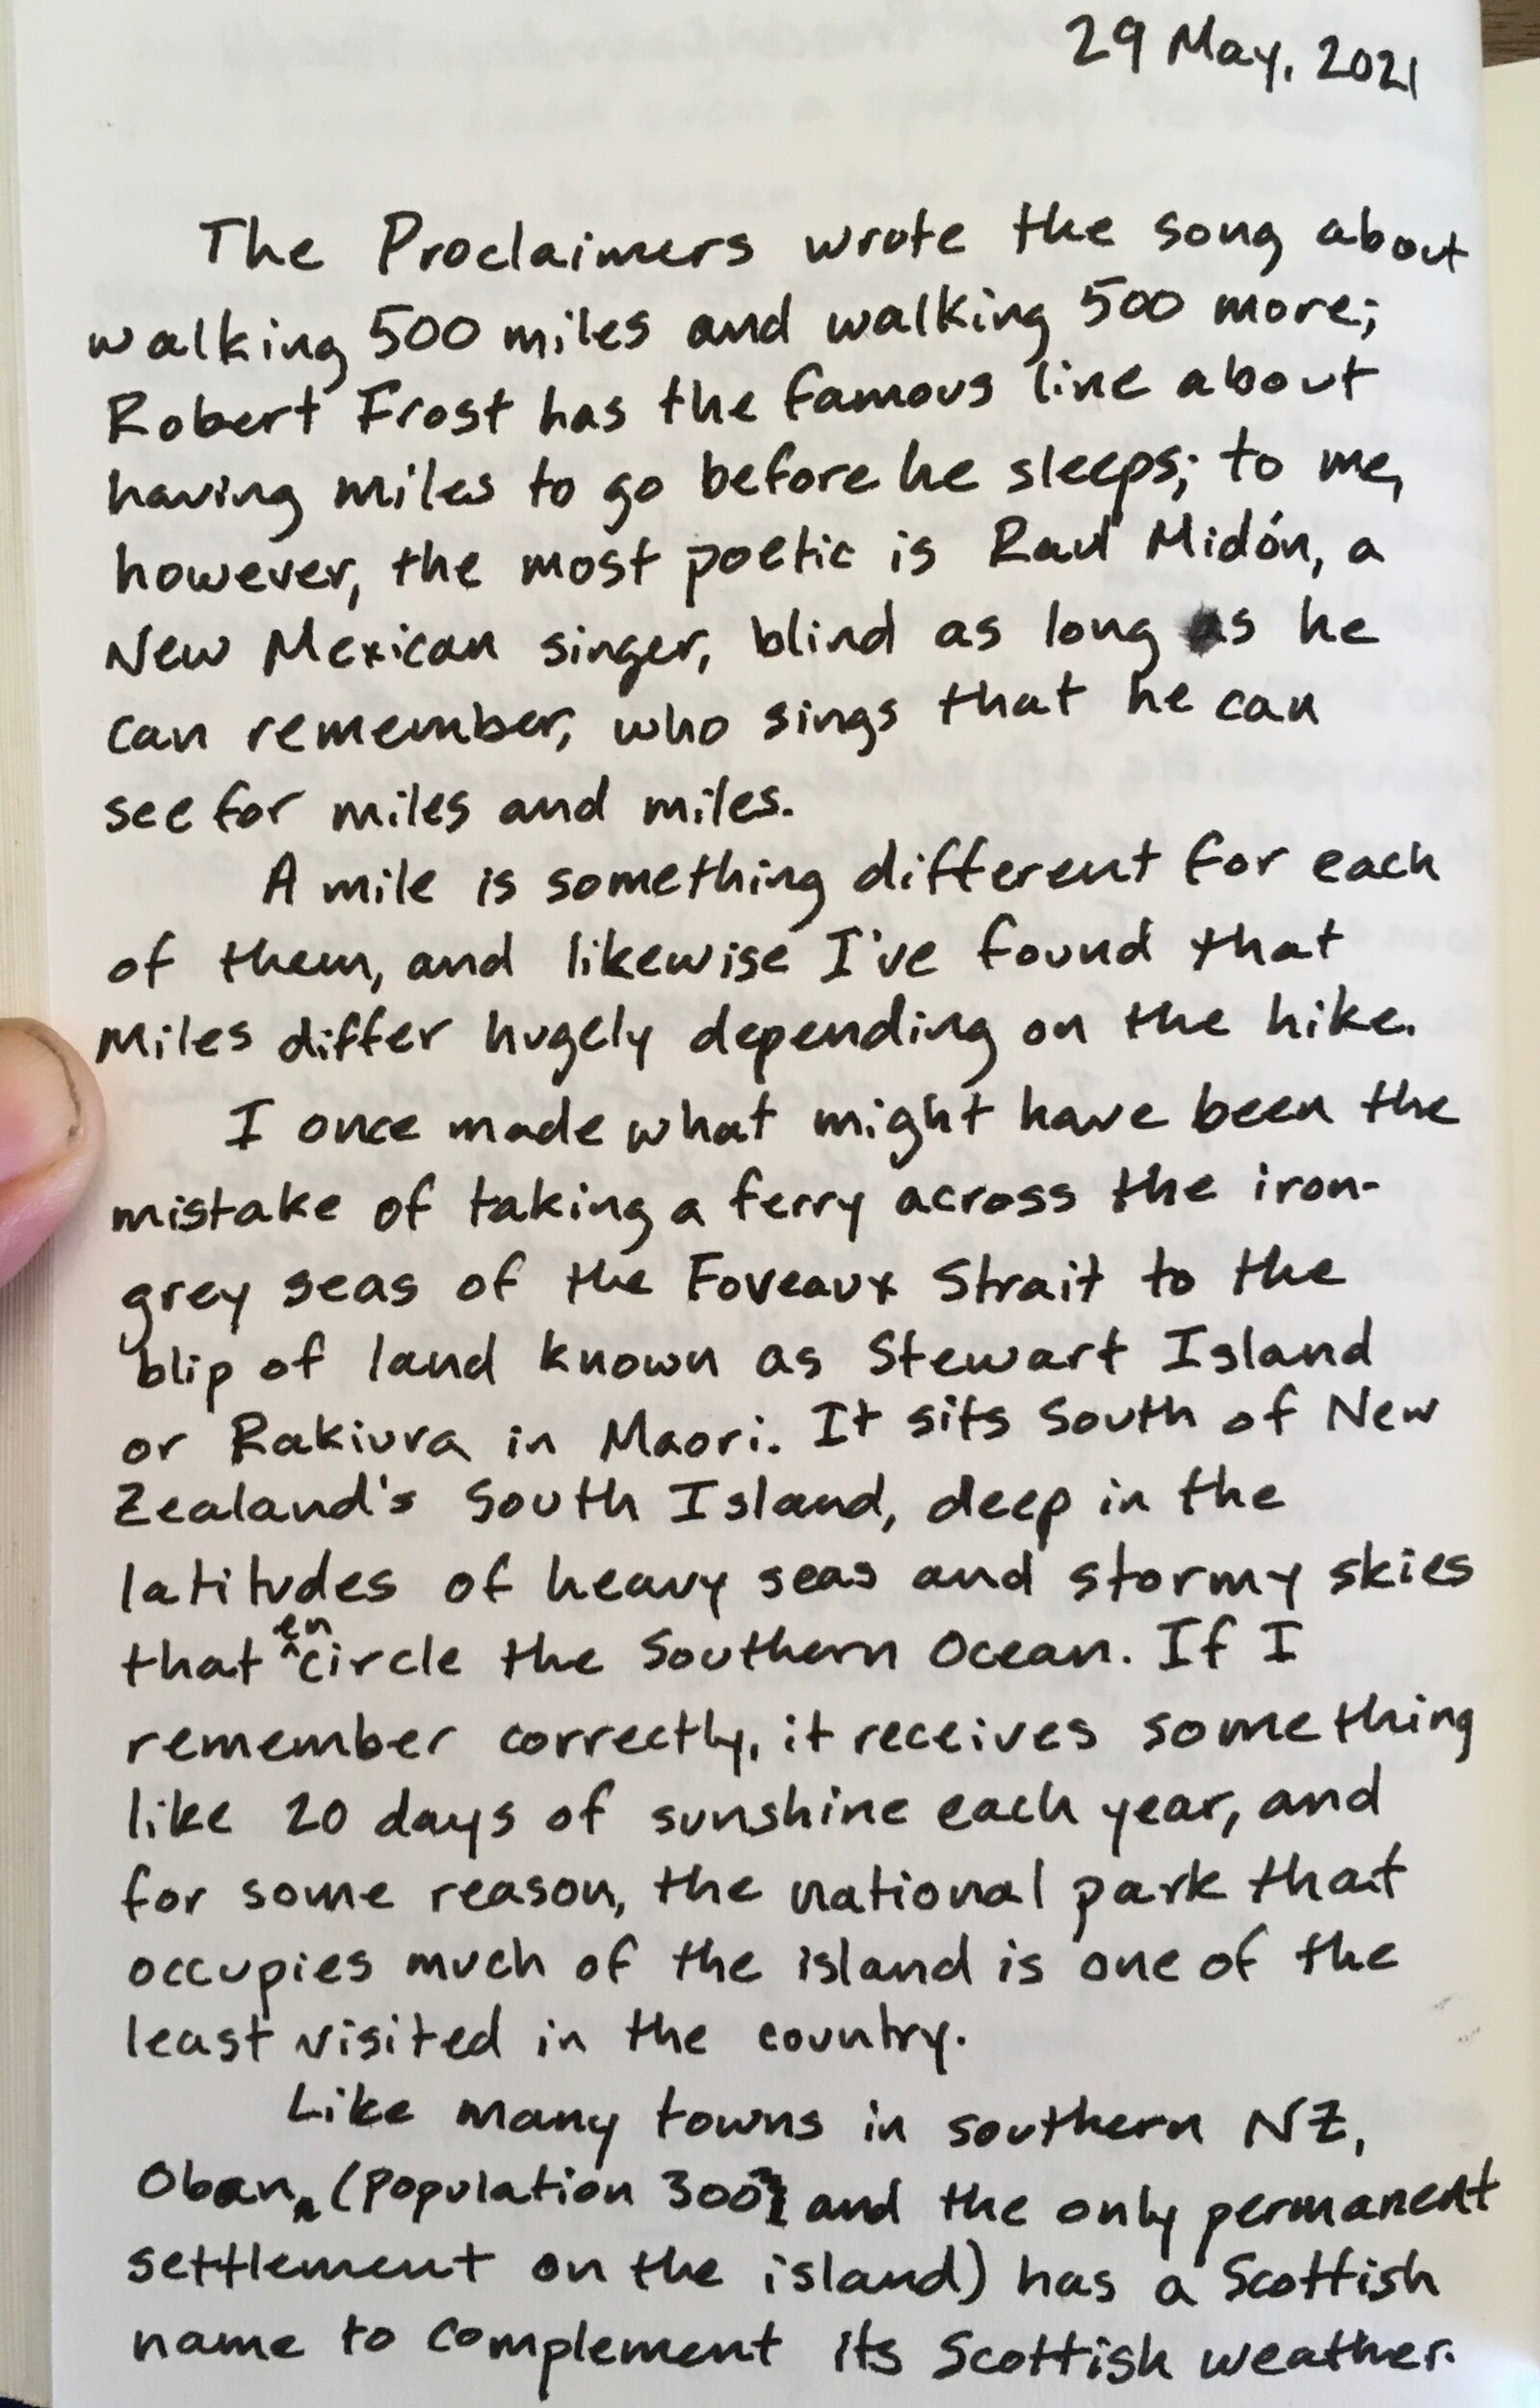 29 May, 2021
The Proclaimers wrote the song about
walking 500 miles and walking 500 more;
Robert Frost has the famous line about
having miles to go before he sleeps; to me,
however, the most poetic is Raul Midón, a
New Mexican singer, blind as long as he
can remember, who sings that he can
see for miles and miles.
A mile is something different for each
of them, and likewise I've found that
miles differ hugely depending on the hike.
I once made what might have been the
mistake of taking a ferry across the iron-
grey seas of the Foveaux Strait to the
blip of land known as Stewart Island
or Rakiura in Maori. It sits South of New
Zealand's South Island, deep in the
latitudes of heavy seas and stormy skies
that encircle the Southern Ocean. If I
remember correctly, it receives something
like 20 days of sunshine each year, and
for some reason, the national park that
occupies much of the island is one of the
least visited in the country.
Like many towns in southern NZ,
Oban (population 300 and the only permanent
settlement on the island) has a Scottish
name to complement its Scottish weather.